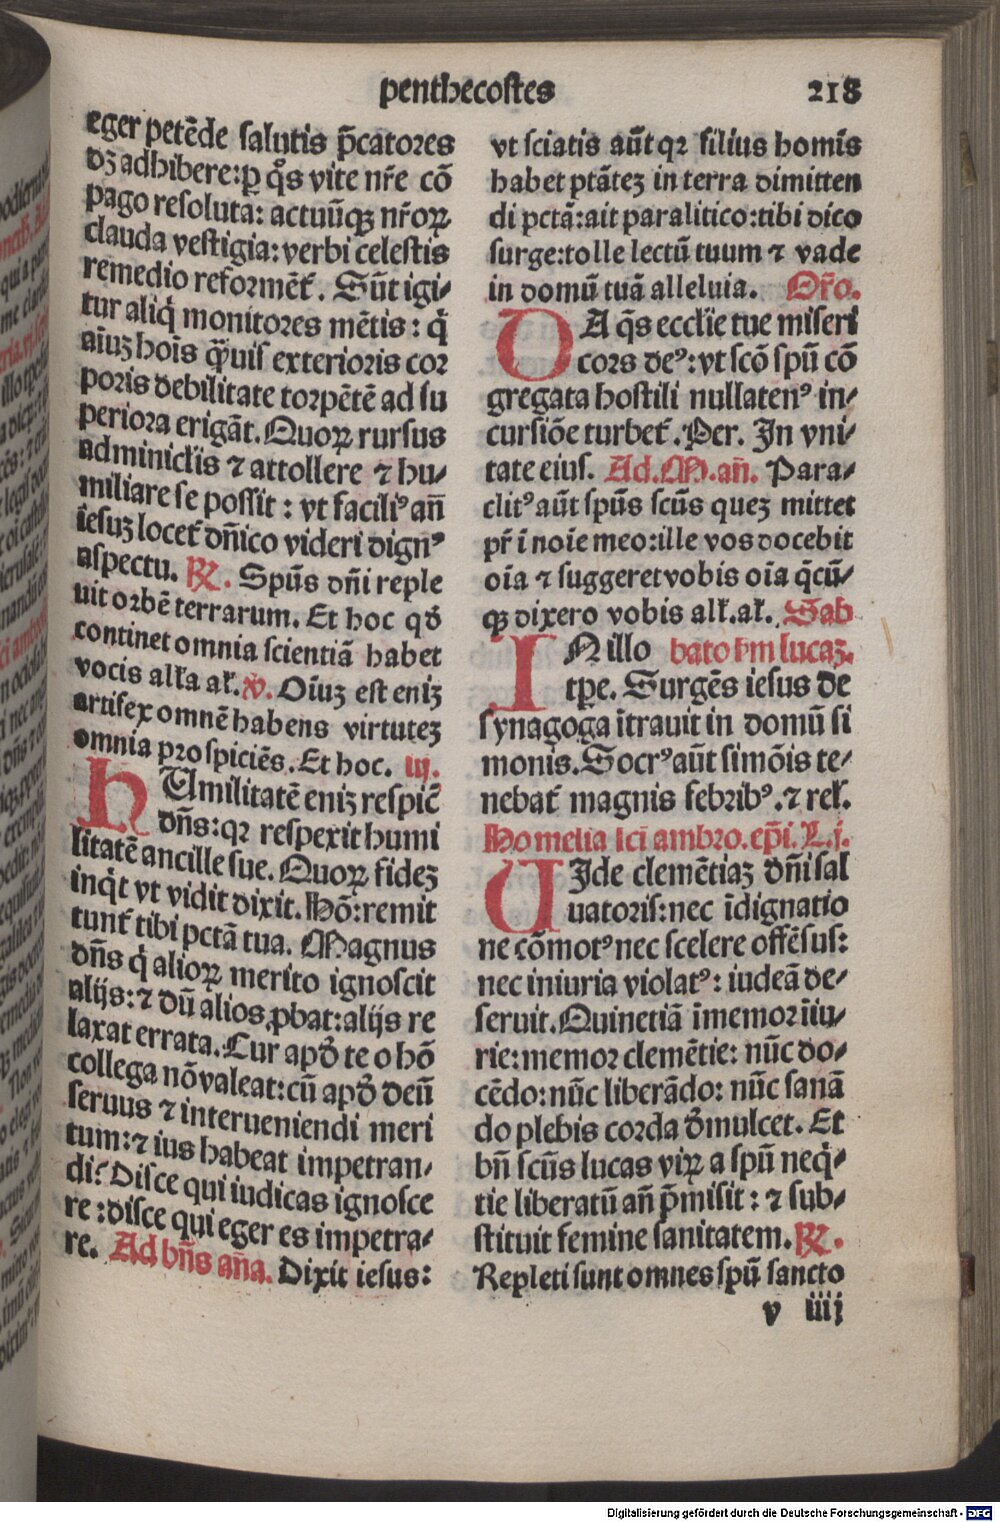 penthecostes 218
eger petēde salutis p̄catores
dȝ adhibere: ꝑ q̊s vite nr̄e cō
pago resoluta: actuūqȝ nr̄oꝝ
clauda vestigia: verbi celestis
remedio reformēt᷑. Sūt igi⸗
tur aliq̇ monitores mētis: q̇
aīuȝ hoīs q̄ȝuis exterioris cor
poris debilitate torpētē ad su
periora erigāt. Quoꝝ rursus
adminicl̓is ⁊ attollere ⁊ hu⸗
miliare se possit: vt faciliꝰ an̄
iesuȝ locet᷑ dn̄ico videri dignꝰ
aspectu. ℟. Spūs dn̄i reple
uit orbē terrarum. Et hoc qđ
continet omnia scientiā habet
vocis all̓a al̓. ℣. Oīuȝ est eniȝ
artifex omnē habens virtuteȝ
omnia prospiciēs. Et hoc. iij.
HUmilitatē eniȝ respic̄
dn̄s: qꝛ respexit humi
litatē ancille sue. Quoꝝ fideȝ
inq̇t vt vidit dixit. Hō: remit
tunt᷑ tibi pctā tua. Magnus
dn̄s q̇ alioꝝ merito ignoscit
alijs: ⁊ dū alios ꝓbat: alijs re
laxat errata. Cur apđ te o hō
collega nō valeat: cū apđ deū
seruus ⁊ interueniendi meri
tum: ⁊ ius habeat impetran⸗
di? Disce qui iudicas ignosce
re: disce qui eger es impetra⸗
re. Ad bn̄s an̄a. Dixit iesus:
vt sciatis aūt qꝛ filius homīs
habet ptāteȝ in terra dimitten
di pctā: ait paralitico: tibi dico
surge: tolle lectū tuum ⁊ vade
in domū tuā alleluia. Or̄o.
DA q̄s eccl̓ie tue miseri
cors deꝰ: vt scō spū cō
gregata hostili nullatenꝰ in⸗
cursiōe turbet᷑. Per. In vni⸗
tate eius. Ad. M. an̄. Para⸗
clitꝰ aūt spūs scūs queȝ mittet
pr̄ ī noīe meo: ille vos docebit
oīa ⁊ suggeret vobis oīa q̄cū⸗
qȝ dixero vobis all̓. al̓. Sab
IN illo bato ẜm lucaȝ.
tꝑe. Surgēs iesus de
synagoga ītrauit in domū si
monis. Socrꝰ aūt simōis te⸗
nebat᷑ magnis febribꝰ. ⁊ rel̓.
Homelia sc̄i ambro. ep̄i. L. j.
UIde clemētiaȝ dn̄i sal
uatoris: nec īdignatio
ne cōmotꝰ nec scelere offēsus:
nec iniuria violatꝰ: iudeā de⸗
seruit. Quinetiā īmemor īiu⸗
rie: memor clemētie: nūc do⸗
cēdo: nūc liberādo: nūc sanā
do plebis corda đmulcet. Et
bn̄ scūs lucas viꝝ a spū neq̇⸗
tie liberatū an̄ p̄misit: ⁊ sub⸗
stituit femine sanitatem. ℟.
Repleti sunt omnes spū sancto
v iiij
Digitalisierung gefördert durch die Deutsche Forschungsgemeinschaft - DFG